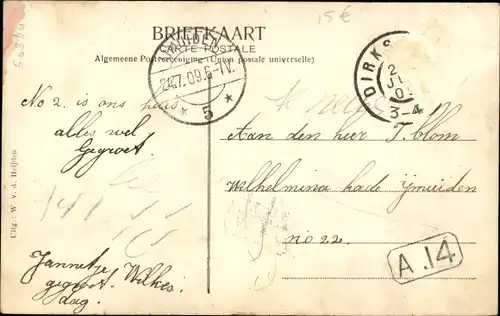 15 €
BRIEFKAART
CARTE POSTALE
Algemeene Postvereeniging (Union postale universelle)
IJMUIDEN
24.7.09.6-7V.
* 5 *
DIRKS
3-4
No 2. is ons huis
alles wel
Gegroet
Aan den heer T. blom
Wilhelmina kade Ymuiden
no 22.
Jannetje Wilkes.
gegroet
dag.
A.14
Uitg.: W. v. d. Heijden